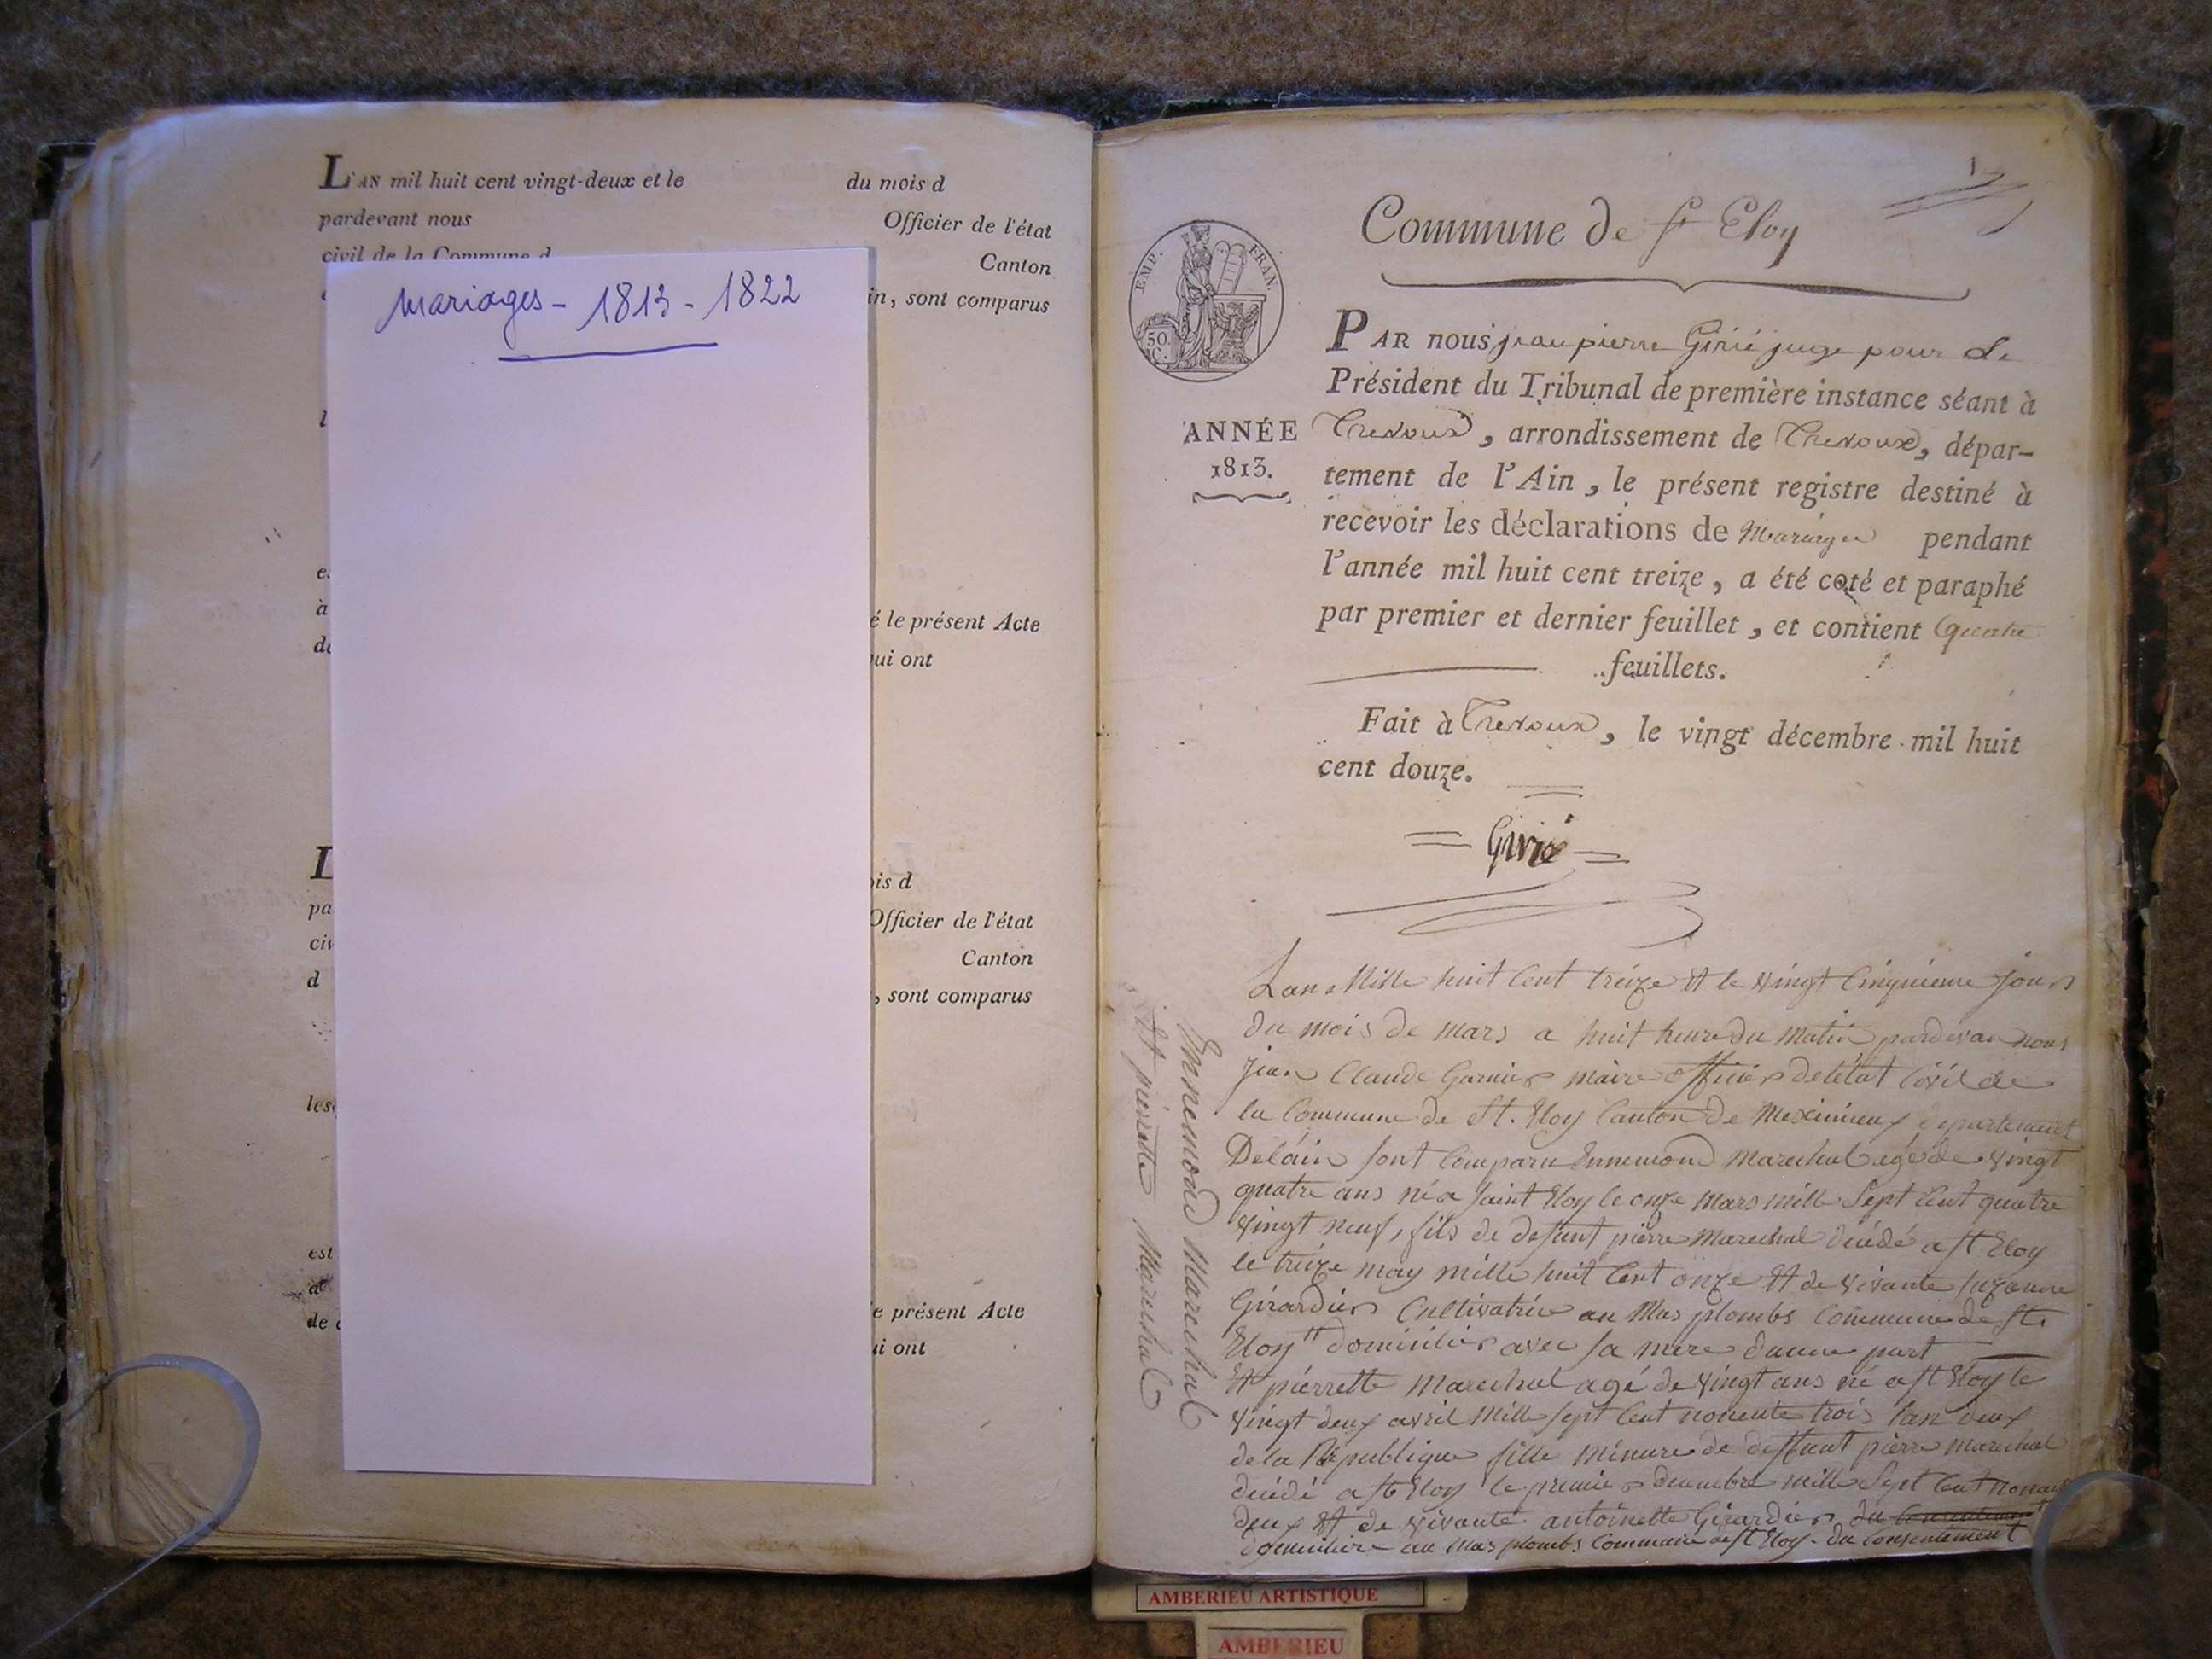 L'AN mil huit cent vingt-deux et le du mois d
pardevant nous Officier de l'état
civil de la Commune d Canton
in, sont comparus
Mariages - 1813 - 1822
é le présent Acte
qui ont
L
pa
ois d
Officier de l'état
civ
Canton
d
, sont comparus
les
est
e présent Acte
de
ui ont
1
Commune de St Eloy
EMP. FRAN.
50.
C.
ANNÉE
1813.
PAR nous jean pierre Girié juge pour Le
Président du Tribunal de première instance séant à
Trevoux, arrondissement de Trevoux, dépar-
tement de l'Ain, le présent registre destiné à
recevoir les déclarations de Mariages pendant
l'année mil huit cent treize, a été coté et paraphé
par premier et dernier feuillet, et contient quatre
feuillets.
Fait à Trevoux, le vingt décembre mil huit
cent douze.
Girié
Ennemond Marechal
Et pierrette Marechal
Lan Mille huit Cent treize Et le vingt Cinquieme jour
du mois de mars a huit heure du Matin pardevan nous
Jean Claude Garnier maire officier de létat Civil de
la Commune de St. Eloy Canton de Meximieux departement
Delain sont Comparu Ennemond Marechal agé de vingt
quatre ans né a saint Eloy le onze Mars mille Sept Cent quatre
vingt neuf, fils de defunt pierre Marechal décédé a St Eloy
le treize may mille huit Cent onze Et de vivante suzanne
Girardier Cultivatrice au Mas plombs Commune de St.
Eloy domicilier avec sa mere dune part
Et pierrette Marechal agé de vingt ans né a St Eloy le
vingt deux avril Mille sept Cent nonente trois lan deux
de la Republique fille mineure de deffunt pierre Marechal
décédé a St Eloy le premier decembre mille Sept Cent nonante
deux Et de vivante antoinette Girardier du Consentement
domiciliere au Mas plombs Commune de St Eloy - du Consentement
AMBERIEU ARTISTIQUE
AMBERIEU